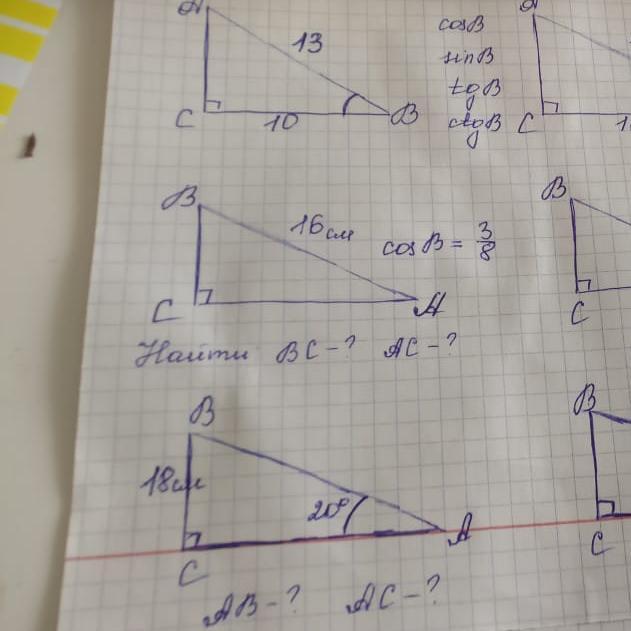 A
13
C
10
B
cosB
sinB
tgB
ctgB
C
B
16см
cosB = 3/8
C
A
Найти BC-? AC-?
B
C
B
18см
20°
A
C
AB-? AC-?
B
C